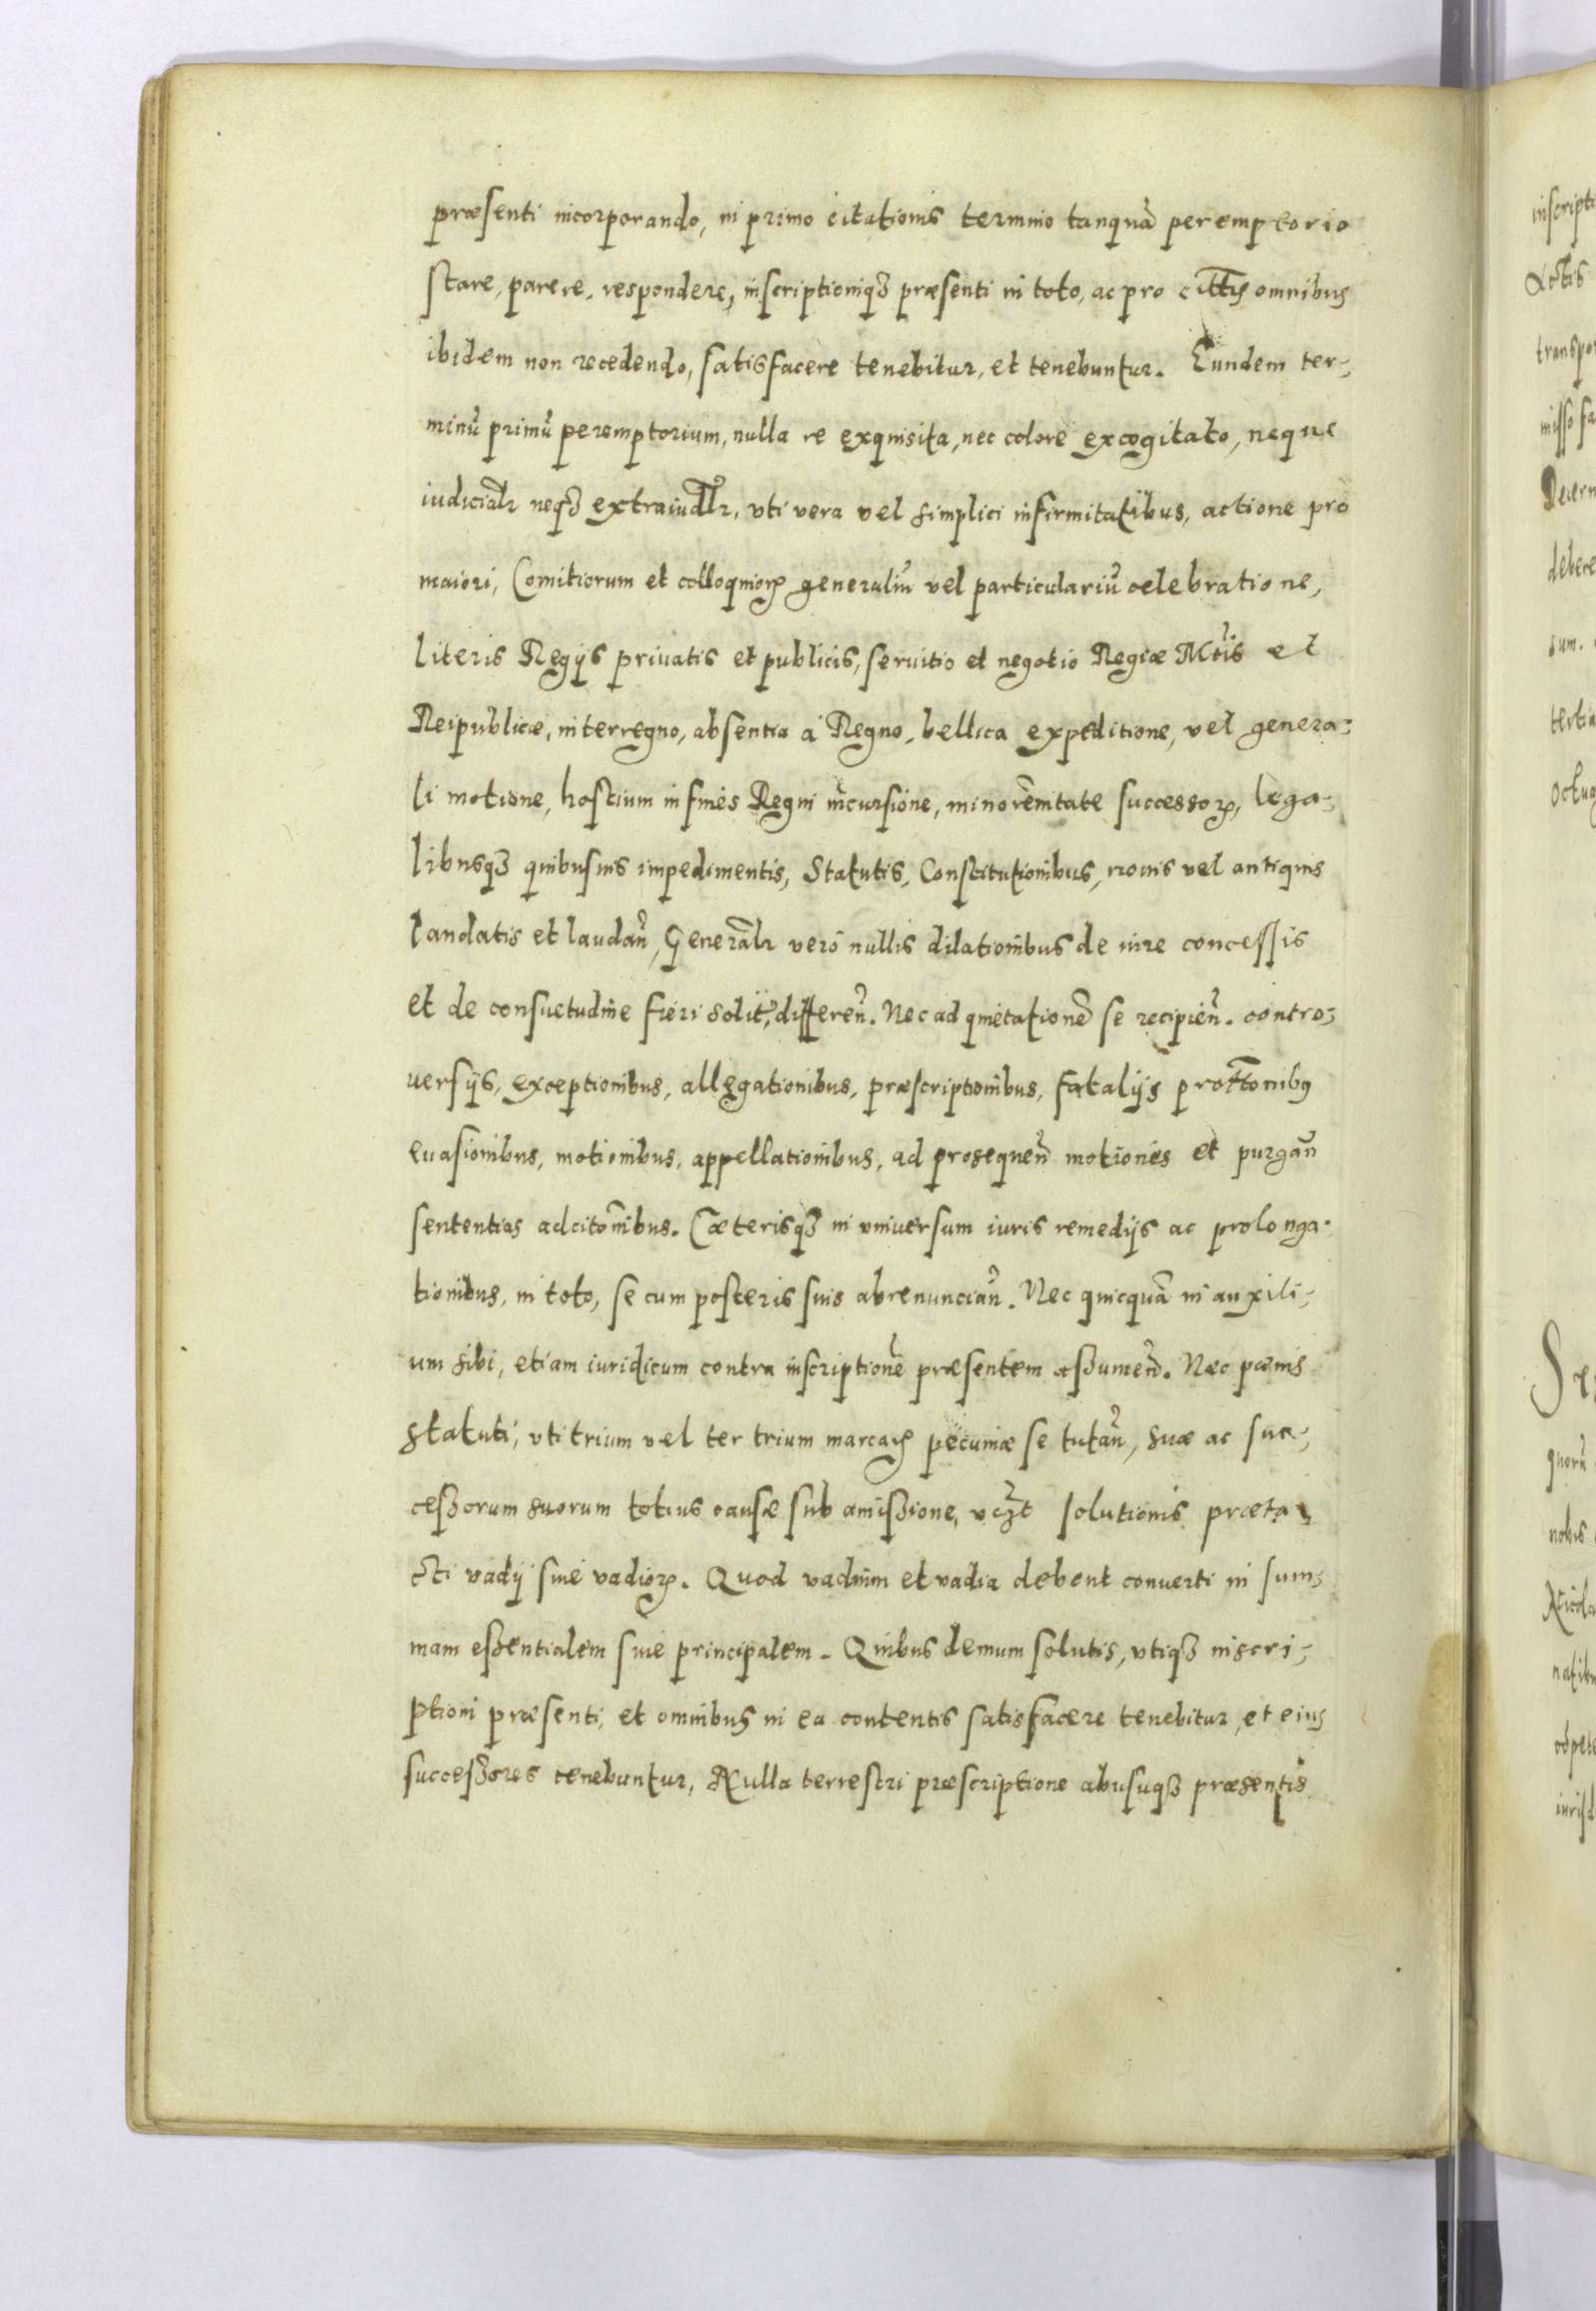 præsenti incorporando, in primo citationis termino tanquā peremptorio
stare, parere, respondere, inscriptioniqꝫ præsenti in toto, ac pro omnibus
ibidem non recedendo, satisfacere tenebitur, et tenebuntur. Eundem ter-
minū primū peremptorium, nulla re exquisita, nec colore excogitato, neque
iudicialr neqꝫ extraiudlr, vti vera vel simplici infirmitatibus, actione pro
maiori, Comitiorum et colloquioꝝ generaliū vel particulariū celebratione,
literis Regijs priuatis et publicis, seruitio et negotio Regiæ Mtis et
Reipublicæ, interregno, absentia à Regno, bellica expeditione, vel genera-
li motione, hostium in fines Regni incursione, minorēnitate successoꝝ, lega-
libusqꝫ quibusuis impedimentis, Statutis, Constitutionibus, nouis vel antiquis
laudatis et laudan̄, Generalr verò nullis dilationibus de iure concessis
et de consuetudine fieri solit̄, differen̄. Nec ad quietationē se recipien̄. contro-
uersijs, exceptionibus, allegationibus, præscriptionibus, fatalijs
euasionibus, motionibus, appellationibus, ad prosequen̄ motiones et purgan̄
sententias adcitōnibus. Cæterisqꝫ in vniuersum iuris remedijs ac prolonga-
tionibus, in toto, se cum posteris suis abrenuncian̄. Nec quicquā in auxili-
um sibi, etiam iuridicum contra inscriptionē præsentem assumen̄. Nec pœnis
statuti, vti trium vel ter trium marcaꝝ pecuniæ se tutan̄, suæ ac suc-
cessorum suorum totius causæ sub amissione, vczt solutionis præta-
cti vadij siue vadioꝝ. Quod vadium et vadia debent conuerti in sum-
mam essentialem siue principalem. Quibus demum solutis, vtiqꝫ inscri-
ptioni præsenti, et omnibus in ea contentis satisfacere tenebitur, et eius
successores tenebuntur, Nulla terrestri præscriptione abusuqꝫ præsentis